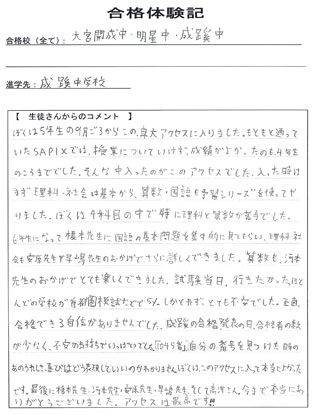 合格体験記
合格校（全て）： 大宮開成中・明星中・成蹊中
進学先： 成蹊中学校
【 生徒さんからのコメント 】
ぼくは5年生の9月ごろからこの、東大アクセスに入りました。もともと通って
いたSAPIXでは、授業についていけず、成績がよか
のころまででした。そんな中入ったのがこのアクセスでした。入った時は
まず理科・社会は基本から、算数・国語も予習シリーズを使ってや
りました。ぼくは4科目の中で特に理科と算数が苦手でした。
6年生になって橋本先生に国語の基本問題を集中的に見てもらい、理科・社
会も宮原先生や早場先生のおかげでさらに詳しくできました。算数も、河本
先生のおかげでとても楽しくできました。試験当日、行きたかったほと
んどの学校が
合格できる自信がありませんでした。成蹊の合格発表の日、合格者の数
が少なく、不安の気持ちでいっぱいでした。「045番」自分の番号を見つけた時の
あのうれしさ、喜びはどう表現していいのかわかりません。ぼくは、このアクセスに入って本当によかった
です。最後に橋本先生、河本先生、宮原先生、早場先生、そして高沢さん、今まで本当にあ
りがとうございました。アクセスは最高です!!